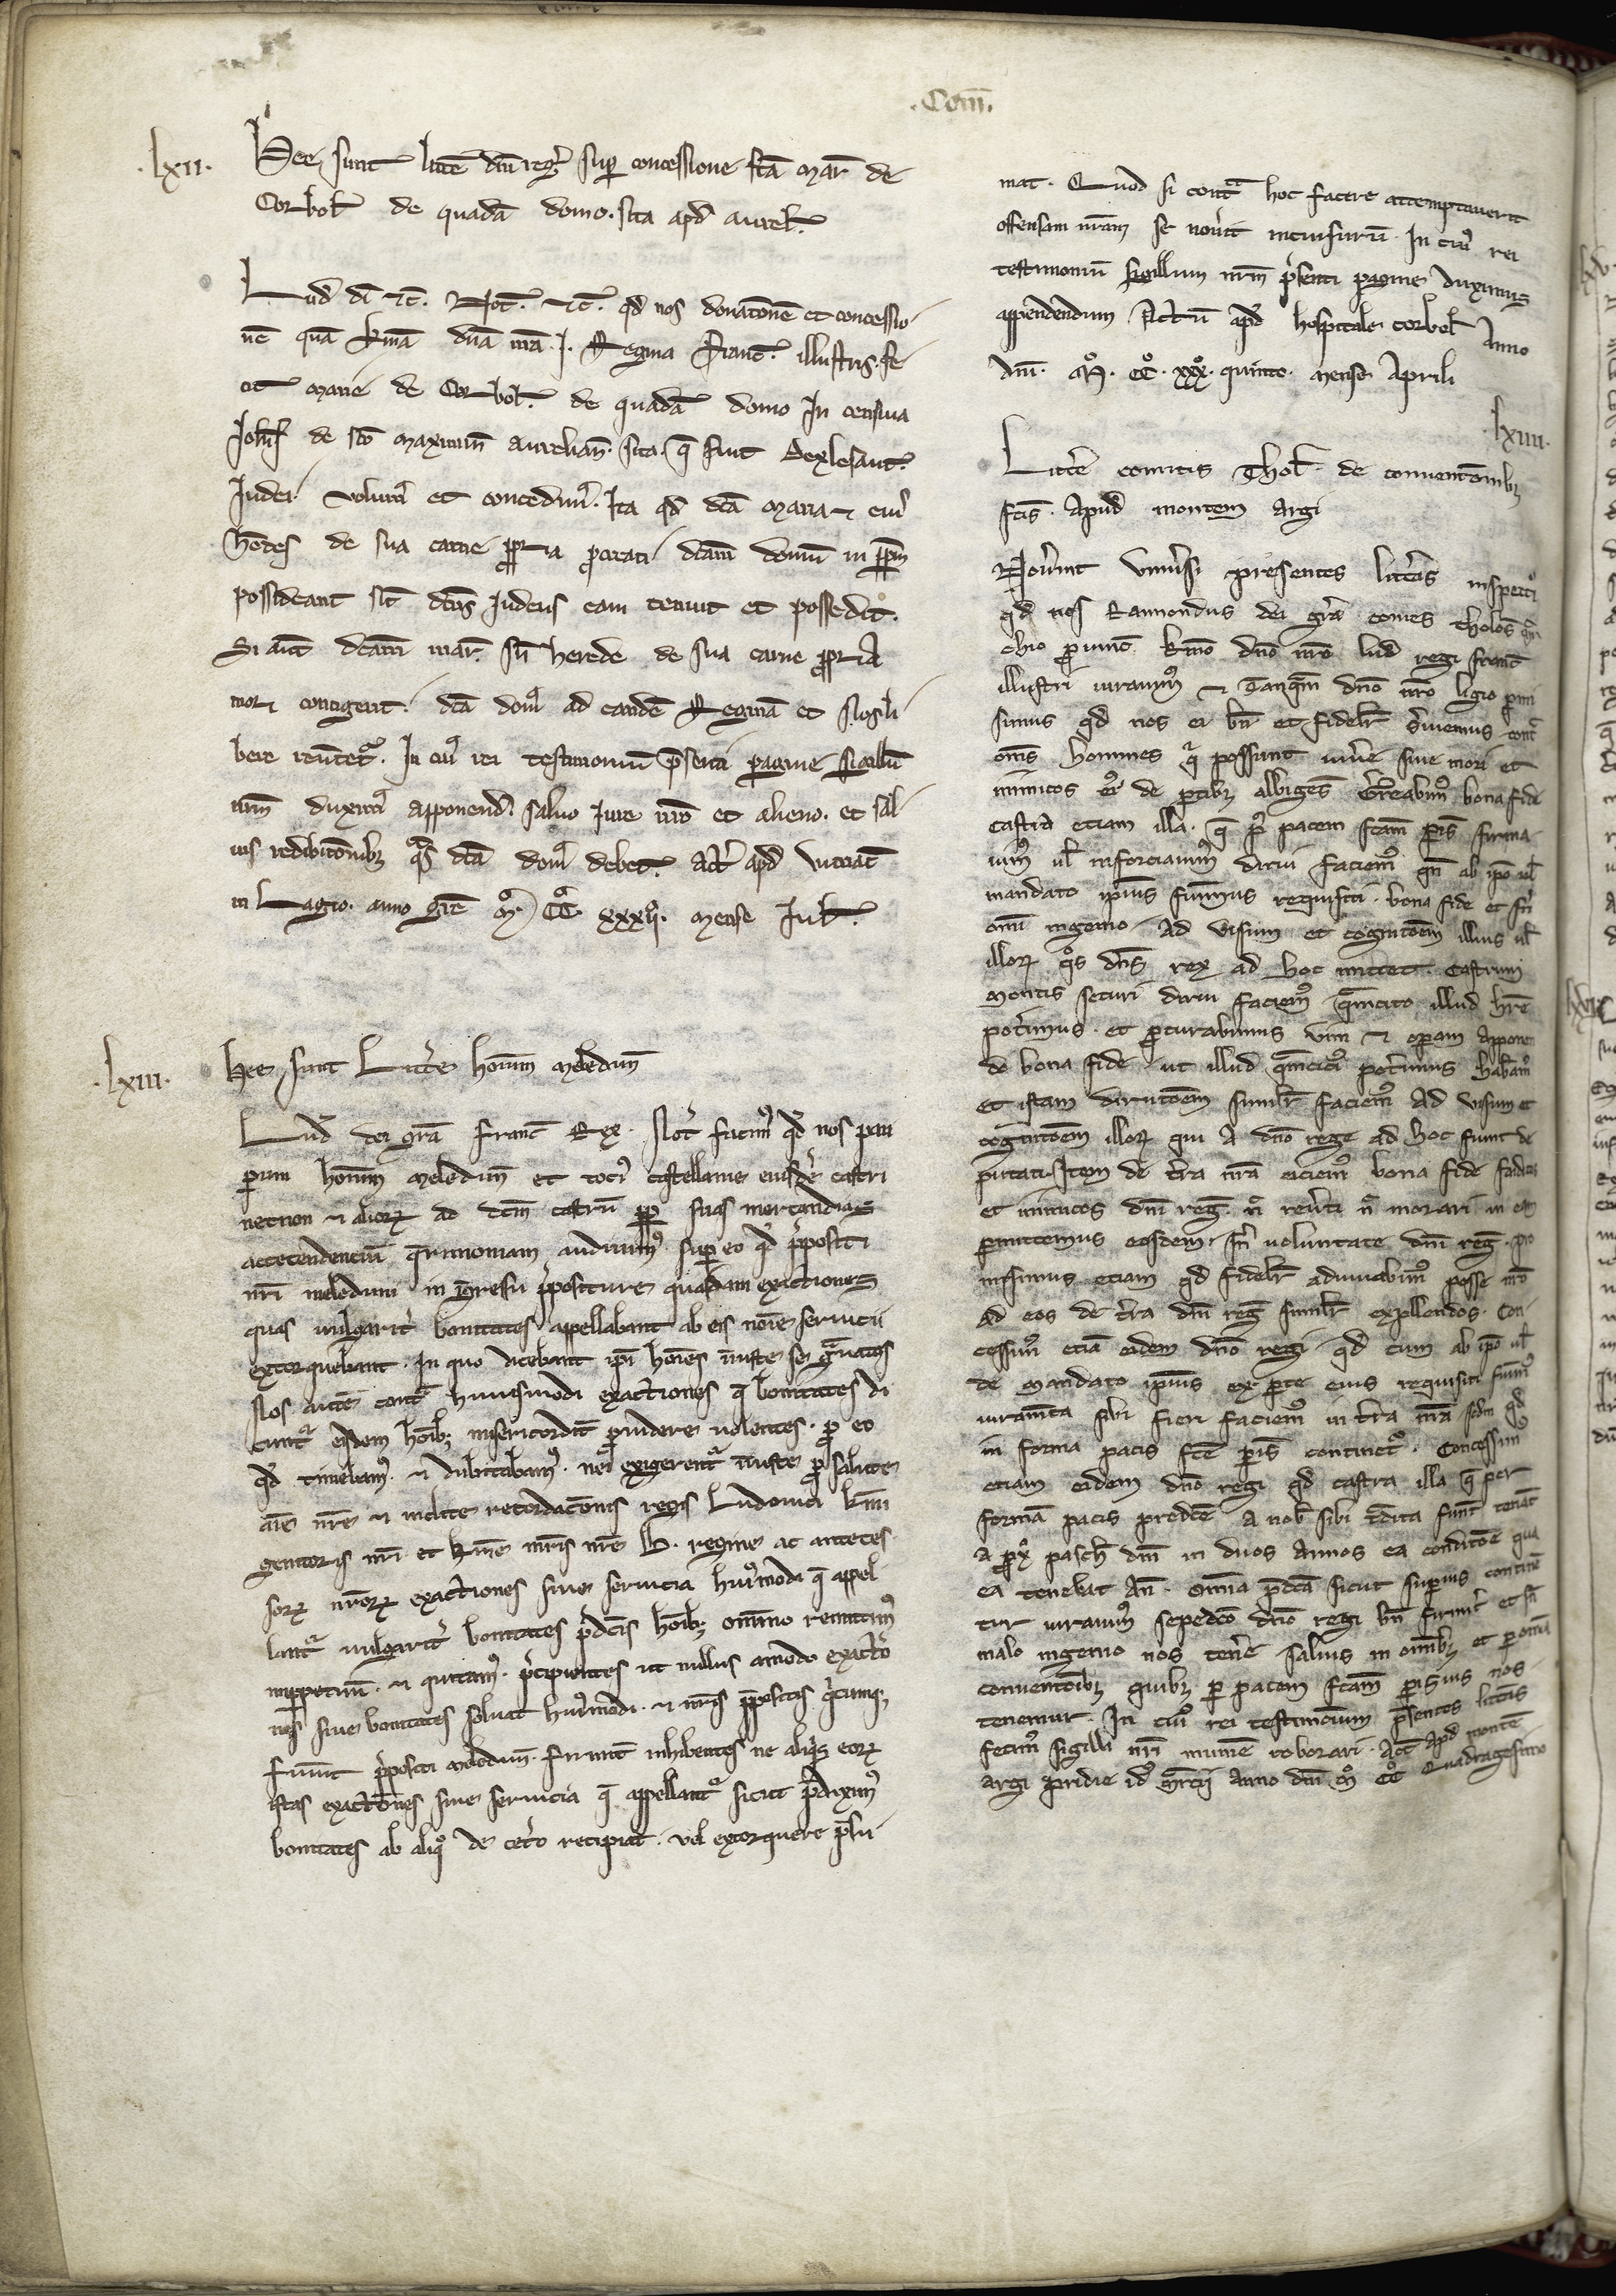 .Com̄.
.lxii.
Hee sunt littē dn̄i reg̃ sup̱ concessione fc̄a Mar̃ de
Corbol̃ de quadā domo. sita apd̃ aurel̃.
Lud̃ dī ⁊c̃. Not̃. ⁊c̃. qd̃ nos donac̄onē et concessio
nē quā kmā dn̄a mā I. Regina Franc̃. illustris. fe
cit Marie de Corbol̃. de quadā domo in censiua
Ioh̃is de sc̄o Maximin̄ aurelian̄. sita. q̄ fuit Dexlesaut.
Iudei volum⁹ et concedim⁹. Ita qd̃ dc̄a Maria ⁊ eiu⁹
h̄edes de sua carne ꝓpria ꝓcreati dc̄am domū in ꝑpm̄
possideant sic̄ dc̄us Iudeus eam tenuit et possedit.
Si aut̄ dc̄am mar̃. sn̄ herede de sua carne ꝓpria
mori contigerit. dc̄a dom⁹ ad eandē Reginā et nos li
bere reu̾tet᷑. In cu⁹ rei testimoniū p̄senti pagine sigillū
nr̄m duxim⁹ apponend̃. saluo iure nr̄o et alieno. et sal
uis redibic̄onib; qᵃs dc̄a dom⁹ debet. Act̃ apd̃
in Lagio. anno gr̄e mͦ. ccͦ. xxxijͦ. mense Iul̃.
.lxiii.
Hee sunt Litt̾e hoīum Meledun̄
Lud̃ dei gr̄a Franc̃ Rex. Not̃ facim⁹ qd̃ nos pau
ꝑum hoīum Meledun̄ et toci⁹ castellanie eiusdē castri
necnon ⁊ alioꝝ ad dc̄m castrū ꝓp̄ suas mercandias
accedenciū q̄rimoniam audiuim⁹. sup̱ eo qd̃ p̄positi
nr̄i meleduni in īgresu p̄positure quasdam exactiones
quas uulgarit̾ bonitates appellabant ab eis noīe seruicii
extorquebant. In quo dicebant ip̄i hoīes iniuste se gᵃuatos
Nos autē contᵃ huiusmodi exactiones q̄ bonitates di
cunt᷑ eisdem hoīb; misericordit̾ ꝓuidere uolentes. ꝓ eo
qd̃ timebam⁹. ⁊ dubitabam⁹. ne exigerent᷑ īiuste ꝓ salute
aīe nr̄e ⁊ inclite recordac̄onis regis Ludouici kmī
genitoris nr̄i. et kme mr̄is nr̄e B. regine ac anteces
soꝝ nr̄oꝝ exactiones siue seruicia hui⁹modi q̄ appel
lant᷑ uulgarit̾ bonitates p̄dc̄is hoīb; omnino remittim⁹
inꝑpetuū. ⁊ quitam⁹. p̄cipientes ut nullus amodo exactō
nes siue bonitates soluat hui⁹modi. ⁊ nr̄is p̄positis qͥcumq;
fuerint p̄positi Meledun̄. firmit̾ inhibentes ne aliqͥs eoꝝ
istas exactiones siue seruicia q̄ appellant᷑ sicut p̄diximus
bonitates ab aliqͦ de cet̾o recipiat. vel extorquere p̄su
mat. Quod si contᵃ hoc facere attemptauerit
offensam nr̄am se nou̾it incursurū. In cui⁹ rei
testimoniū sigillum nr̄m p̄senti pagine duximus
appendendum. Actū apd̃ hospitale corbol̃ Anno
dn̄i. Mͦ. CCͦ. xxxͦ. quinto. Mense Aprili
.lxiiii.
Litt̾e comitis Thol̃. de conuentōnib;
fc̄is. Apud montem Argi
Nou̾int Vniu̾si presentes litt̾as inspecturi
qd̃ nos Raimondus dei gr̄a comes Tholos̄
chio ꝓuinc̃ kmo dn̄o nr̄o Lud̃ regi franc̃
illustri iurauim⁹ ⁊ tanqᵃm dn̄o nr̄o ligio ꝓmi
simus qd̃ nos ei bn̄ et fidelit̾ s̾uiemus contᵃ
om̄s homines qͥ possunt uiu̾e siue mori et
inimicos ei⁹ de ꝑtib; albiges̄ gu̾reabim⁹ bona fide
castra etiam illa. q̄ p⁹ pacem fc̄am ꝑis̄ firma
uim⁹ ul̃ inforciauim⁹ dirui faciem⁹ qn̄ ab ip̄o ul̃
mandato ipius fuimus requisiti. bona fide et sn̄
om̄i ingenio. Ad visum et cognic̄oem illius ul̃
illoꝝ qͦs dn̄s rex ad hoc mittet. Castrum
Montis securi dirui faciem⁹ qᵃmcito illud hr̄e
pot̾imus. et ꝓcurabimus vim ⁊ oꝑam apponen
do bona fide ut illud qᵃmcici⁹ pot̾imus habeam⁹
et istam dirutōem similit̾ faciem⁹ Ad visum et
cognitōem illoꝝ qui a dn̄o rege ad hoc fuint de
putati. Item de t̾ra nr̄a eiciem⁹ bona fide faiditos
et inimicos dn̄i reg̃. nͨ reu̾ti nͨ morari in ea
ꝑmittemus eosdem. sn̄ uoluntate dn̄i reg̃. pro
misimus etiam qd̃ fidelit̾ adiuuabim⁹ posse nr̄o
ad eos de t̾ra dn̄i reg̃ similit̾ expellendos. Con
cessim⁹ etiā eidem dn̄o regi qd̃ cum ab ip̄o ul̃
de mandato ipius ex ꝑte eius requisiti fuim⁹
iuram̄ta sibi fieri faciem⁹ in t̾ra nr̄a scdm̄ qd̃
in forma pacis fc̄e ꝑis̄ continet᷑. Concessim⁹
etiam eidem dn̄o regi qd̃ castra illa q̄ per
formā pacis predc̄e a nob̃ sibi t̾dita sunt tenāt
a ꝓxͦ pasch̃ dn̄i in duos annos ea condic̄oe qua
ea tenebat an̄. Omnia p̄dc̄a sicut superius contine
tur iurauim⁹ sepedc̄o dn̄o regi bn̄ firmit̾ et sn̄
malo ingenio nos ten̾e saluis in omīb; et ꝑ omīa
conuentōib; quib; ꝑ pacem fc̄am ꝑisius nos
tenemur. In cui⁹ rei testimonium p̄sentes litt̾as
fecim⁹ sigilli nr̄i munīe roborari. Act̃ apd̃ montē
argi pridie id⁹ marcij Anno dn̄i mͦ ccͦ Quadragesimo